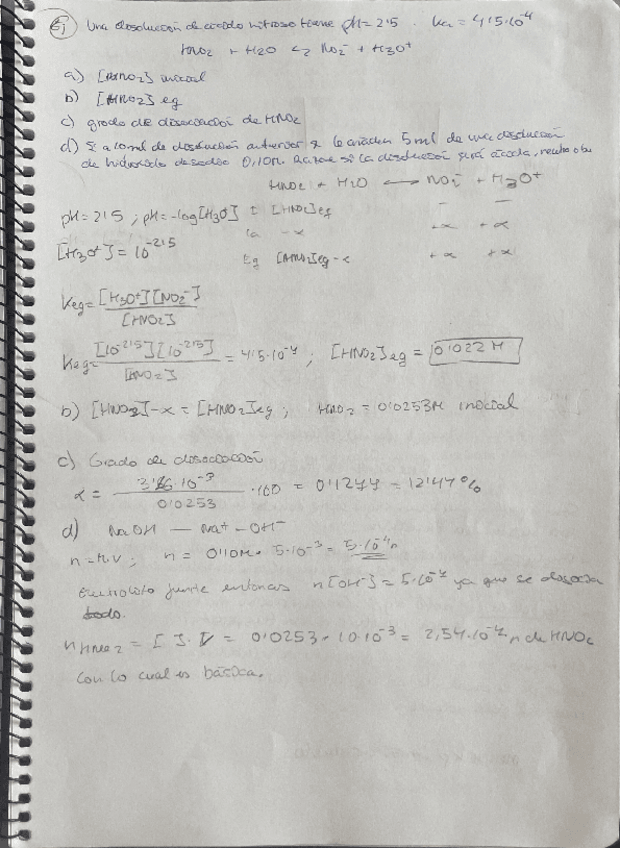 Ej Una disolución de ácido nitroso tiene pH = 2'5 . Ka = 4'5·10⁻⁴
HNO₂ + H₂O ⇄ NO₂⁻ + H₃O⁺
a) [HNO₂] inicial
b) [HNO₂] eq
c) grado de disociación de HNO₂
d) Si a 10 ml de disolución anterior se le añaden 5 ml de una disolución
de hidróxido de sodio 0,10M. Razone si la disolución será ácida, neutra o ba
HNO₂ + H₂O ⟷ NO₂⁻ + H₃O⁺
pH = 2'5 ; pH = -log[H₃O⁺] I [HNO₂]eq - -
-x +x +x
[H₃O⁺] = 10⁻²'⁵
Eq [HNO₂]eq - x +x +x
Keq = [H₃O⁺][NO₂⁻] / [HNO₂]
Keq = [10⁻²'⁵][10⁻²'⁵] / [HNO₂] = 4'5·10⁻⁴ ; [HNO₂]eq = 0'022 M
b) [HNO₂] - x = [HNO₂]eq ; HNO₂ = 0'0253M inicial
c) Grado de disociación
α = 3'16·10⁻³ / 0'0253 · 100 = 0'1247 = 12'47%
d) NaOH — Na⁺ - OH⁻
n = M·V ; n = 0'10M · 5·10⁻³ = 5·10⁻⁴ n
Electrolito fuerte entonces n[OH⁻] = 5·10⁻⁴ ya que se disocia
todo.
n HNO₂ = [ ]·V = 0'0253 · 10·10⁻³ = 2,54·10⁻⁴ n de HNO₂
Con lo cual es básica.